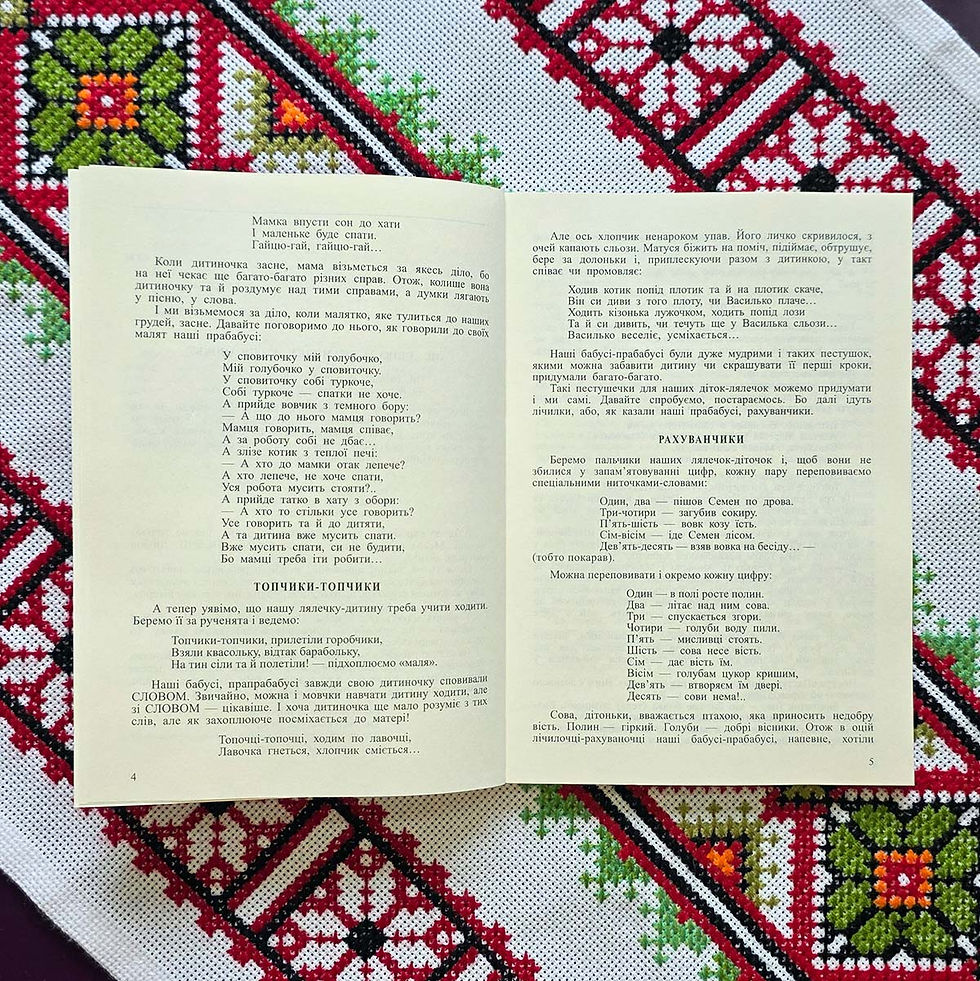 Мамка впусти сон до хати
І маленьке буде спати.
Гайцю-гай, гайцю-гай…
Коли дитиночка засне, мама візьметься за якесь діло, бо
на неї чекає ще багато-багато різних справ. Отож, колише вона
дитиночку та й роздумує над тими справами, а думки лягають
у пісню, у слова.
І ми візьмемося за діло, коли малятко, яке тулиться до наших
грудей, засне. Давайте поговоримо до нього, як говорили до своїх
малят наші прабабусі:
У сповиточку мій голубочко,
Мій голубочко у сповиточку.
У сповиточку собі туркоче,
Собі туркоче — спатки не хоче.
А прийде вовчик з темного бору:
— А що до нього мамця говорить?
Мамця говорить, мамця співає,
А за роботу собі не дбає…
А злізе котик з теплої печі:
— А хто до мамки отак лепече?
А хто лепече, не хоче спати,
Уся робота мусить стояти?..
А прийде татко в хату з обори:
— А хто то стільки усе говорить?
Усе говорить та й до дитяти,
А та дитина вже мусить спати.
Вже мусить спати, си не будити,
Бо мамці треба іти робити…
ТОПЧИКИ-ТОПЧИКИ
А тепер уявімо, що нашу лялечку-дитину треба учити ходити.
Беремо її за рученята і ведемо:
Топчики-топчики, прилетіли горобчики,
Взяли квасольку, відтак барабольку,
На тин сіли та й полетіли! — підхоплюємо «маля».
Наші бабусі, прапрабабусі завжди свою дитиночку сповивали
СЛОВОМ. Звичайно, можна і мовчки навчати дитину ходити, але
зі СЛОВОМ — цікавіше. І хоча дитиночка ще мало розуміє з тих
слів, але як захоплююче посміхається до матері!
Топочці-топочці, ходим по лавочці,
Лавочка гнеться, хлопчик сміється…
4
Але ось хлопчик ненароком упав. Його личко скривилося, з
очей капають сльози. Матуся біжить на поміч, підіймає, обтрушує,
бере за долоньки і, приплескуючи разом з дитинкою, у такт
співає чи промовляє:
Ходив котик попід плотик та й на плотик скаче,
Він си диви з того плоту, чи Василько плаче…
Ходить кізонька лужочком, ходить попід лози
Та й си дивить, чи течуть ще у Василька сльози…
Василько веселіє, усміхається…
Наші бабусі-прабабусі були дуже мудрими і таких пестушок,
якими можна забавити дитину чи скрашувати її перші кроки,
придумали багато-багато.
Такі пестушечки для наших діток-лялечок можемо придумати
і ми самі. Давайте спробуємо, постараємось. Бо далі ідуть
лічилки, або, як казали наші прабабусі, рахуванчики.
РАХУВАНЧИКИ
Беремо пальчики наших лялечок-діточок і, щоб вони не
збилися у запам’ятовуванні цифр, кожну пару переповиваємо
спеціальними ниточками-словами:
Один, два — пішов Семен по дрова.
Три-чотири — загубив сокиру.
П’ять-шість — вовк козу їсть.
Сім-вісім — іде Семен лісом.
Дев’ять-десять — взяв вовка на бесіду… —
(тобто покарав).
Можна переповивати і окремо кожну цифру:
Один — в полі росте полин.
Два — літає над ним сова.
Три — спускається згори.
Чотири — голуби воду пили.
П’ять — мисливці стоять.
Шість — сова несе вість.
Сім — дає вість їм.
Вісім — голубам цукор кришим,
Дев’ять — втворяєм їм двері.
Десять — сови нема!..
Сова, дітоньки, вважається птахою, яка приносить недобру
вість. Полин — гіркий. Голуби — добрі вісники. Отож в оцій
лічилочці-рахуваночці наші бабусі-прабабусі, напевне, хотіли
5